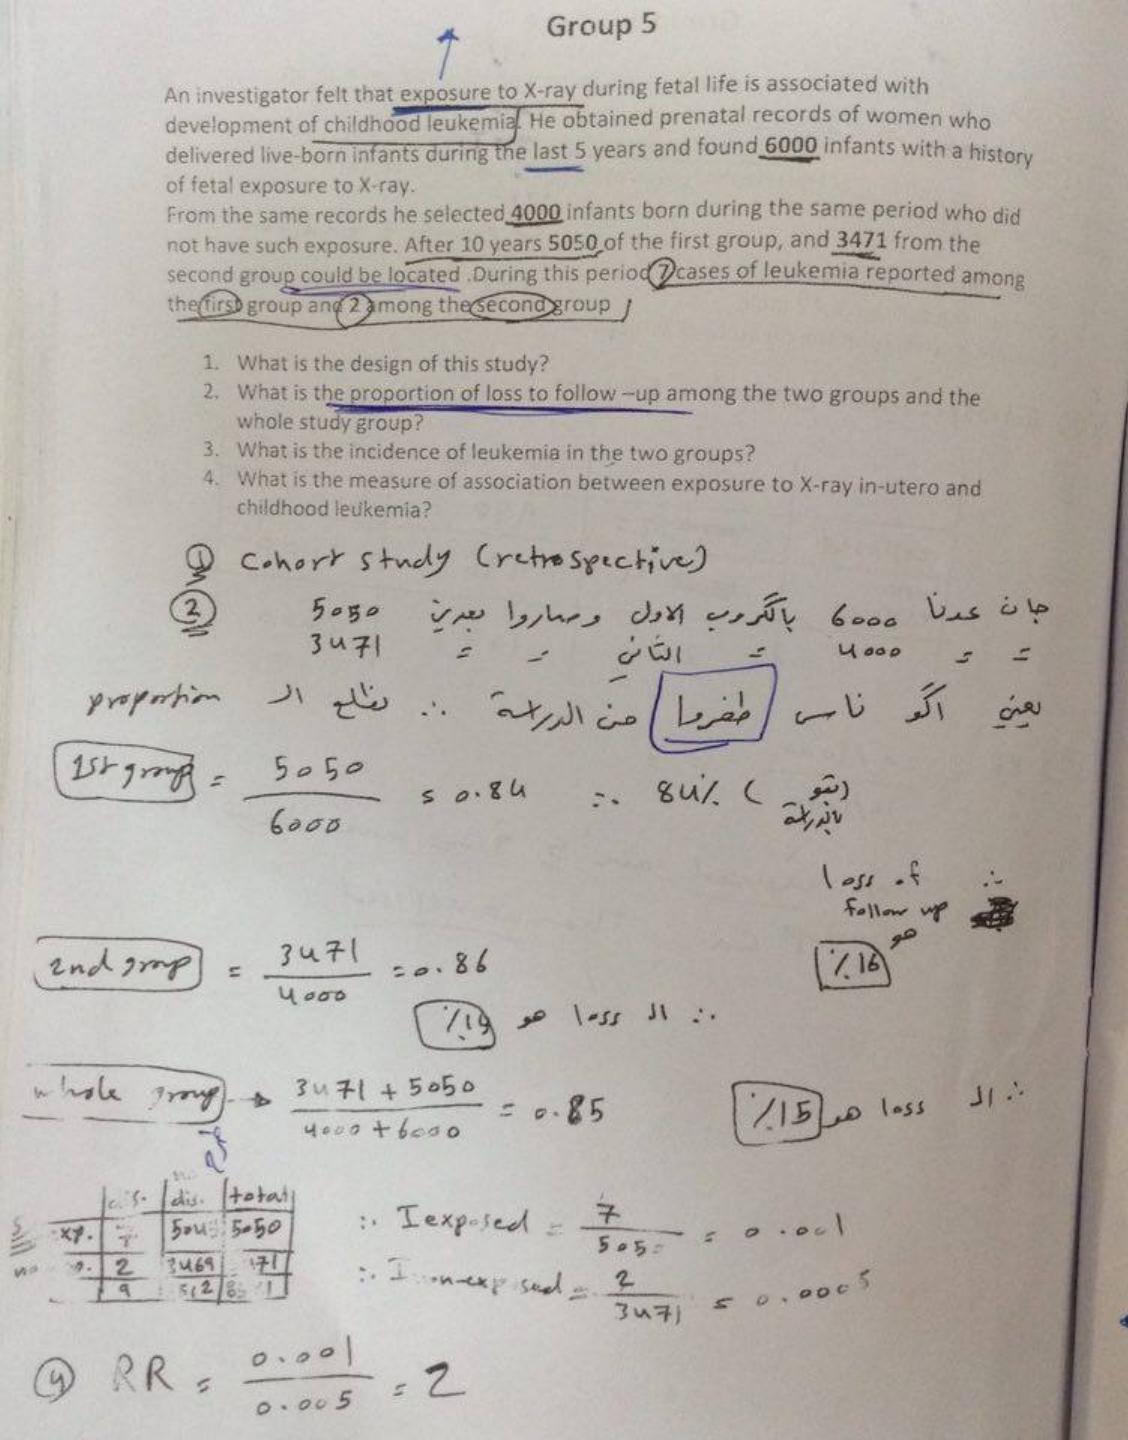 Group 5
An investigator felt that exposure to X-ray during fetal life is associated with
development of childhood leukemia. He obtained prenatal records of women who
delivered live-born infants during the last 5 years and found 6000 infants with a history
of fetal exposure to X-ray.
From the same records he selected 4000 infants born during the same period who did
not have such exposure. After 10 years 5050 of the first group, and 3471 from the
second group could be located .During this period 7 cases of leukemia reported among
the first group and 2 among the second group
1. What is the design of this study?
2. What is the proportion of loss to follow –up among the two groups and the
whole study group?
3. What is the incidence of leukemia in the two groups?
4. What is the measure of association between exposure to X-ray in-utero and
childhood leukemia?
① Cohort study (retrospective)
② جان عدنا 6000 بالگروب الاول وصاروا بعدين 5050
= = 4000 = الثاني = = 3471
يعني اكو ناس طفروا من الدراسة ∴ نطلع الـ proportion
1st group = 5050/6000 = 0.84 ∴ 84% (بقو بالدراسة)
∴ loss of
follow up
هو
%16
2nd group = 3471/4000 = 0.86
∴ الـ loss هو %14
whole group → 3471 + 5050 / 4000 + 6000 = 0.85 ∴ الـ loss هو %15
dis. total
xp. 7 5050
2 3469
9
∴ I exposed = 7/5050 = 0.001
∴ I non-exposed = 2/3471 = 0.0005
④ RR = 0.001/0.005 = 2